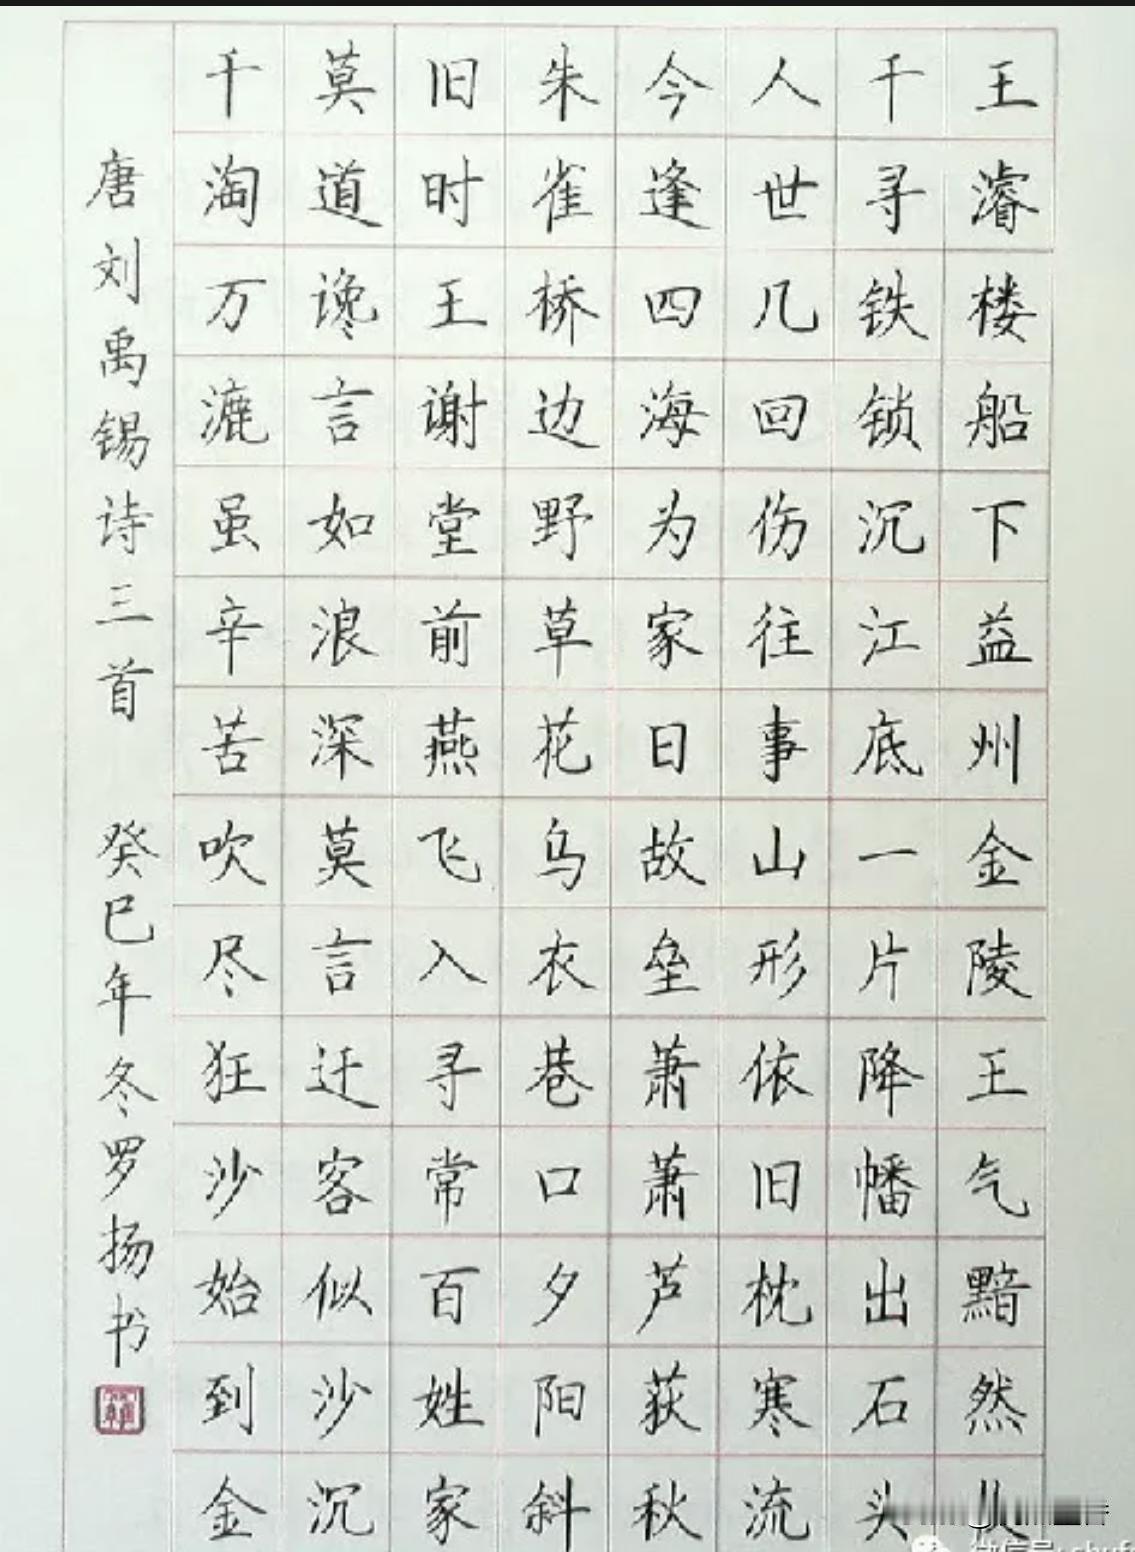 王濬楼船下益州金陵王气黯然
千寻铁锁沉江底一片降幡出石头
人世几回伤往事山形依旧枕寒流
今逢四海为家日故垒萧萧芦荻秋
朱雀桥边野草花乌衣巷口夕阳斜
旧时王谢堂前燕飞入寻常百姓家
莫道谗言如浪深莫言迁客似沙沉
千淘万漉虽辛苦吹尽狂沙始到金
唐刘禹锡诗三首 癸巳年冬罗扬书
微信号: shuf